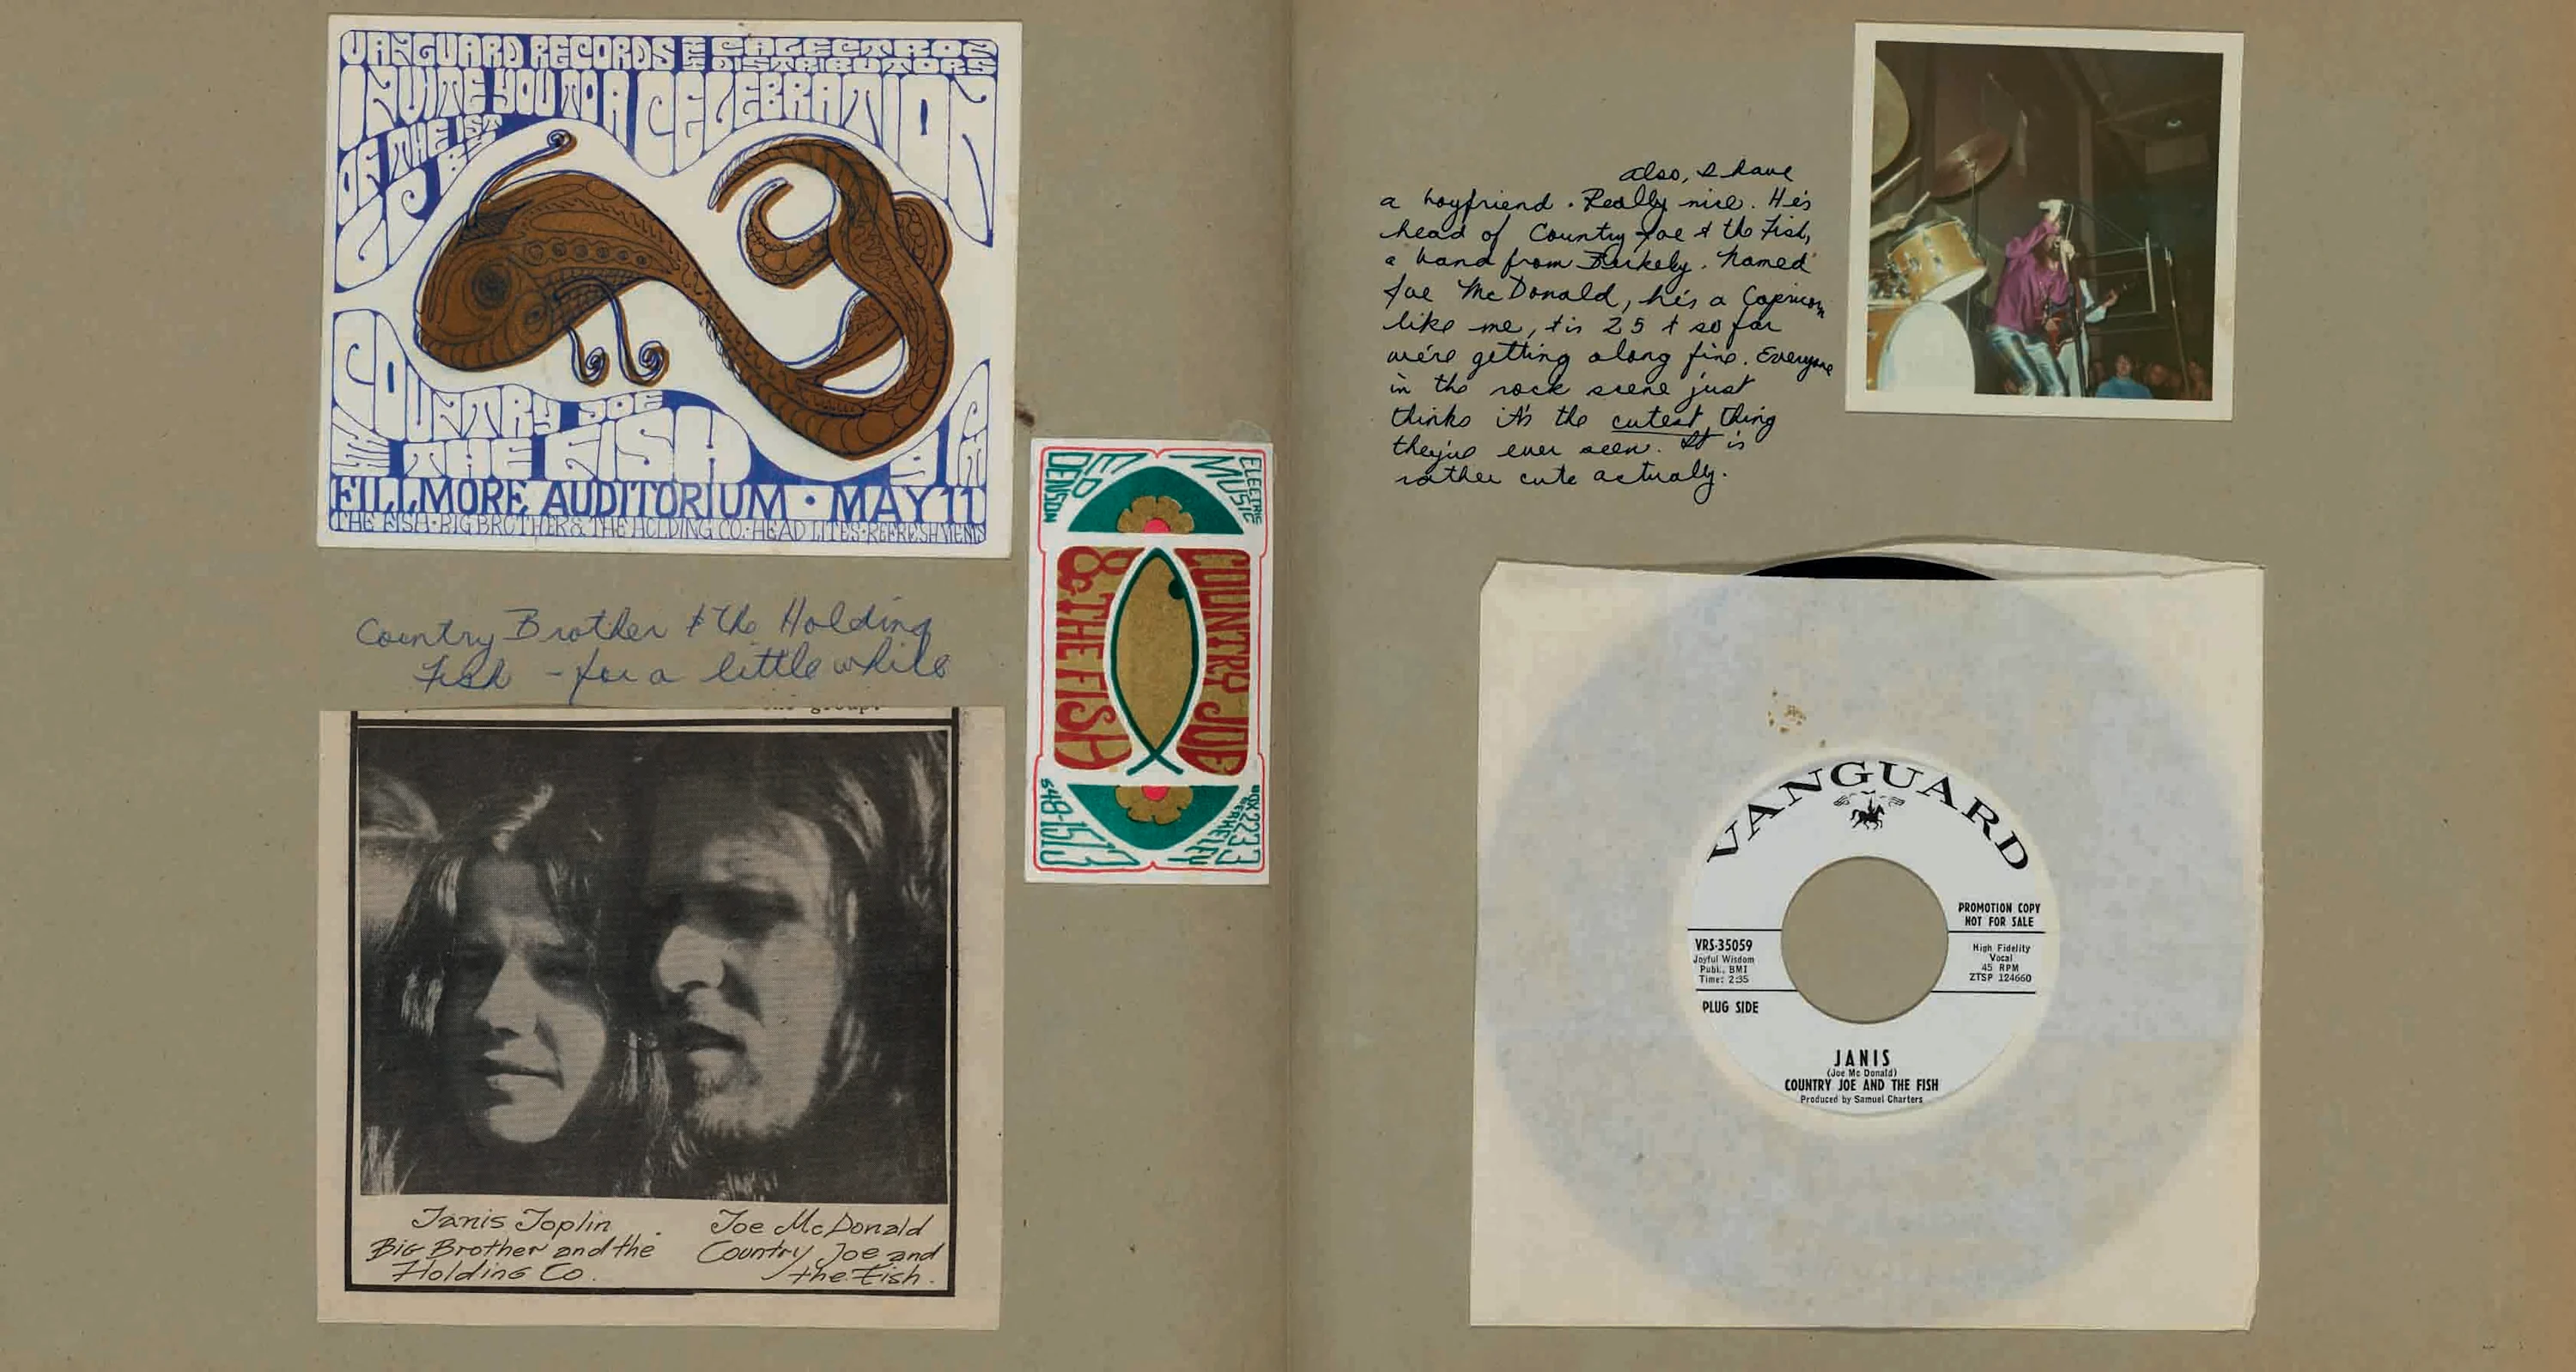 VANGUARD RECORDS AND CALECTRON DISTRIBUTORS
INVITE YOU TO A CELEBRATION
OF THE 1ST
LP BY
COUNTRY JOE
AND THE FISH
9 PM
FILLMORE AUDITORIUM · MAY 11
THE FISH · BIG BROTHER & THE HOLDING CO. · HEAD LITES · REFRESHMENTS
Country Brother & the Holding
Fish - for a little while
the group.
Janis Joplin
Big Brother and the
Holding Co.
Joe McDonald
Country Joe and
the Fish.
ED
DENSON
ELECTRIC
MUSIC
COUNTRY JOE
& THE FISH
548-1513
BOX 2233
BERKELEY
Also, I have
a boyfriend. Really nice. He's
head of Country Joe & the Fish,
a band from Berkely. Named
Joe McDonald, he's a Capricorn
like me, & is 25 & so far
we're getting along fine. Everyone
in the rock scene just
thinks it's the cutest thing
they've ever seen. It is
rather cute actualy.
VANGUARD
PROMOTION COPY
NOT FOR SALE
VRS-35059
Joyful Wisdom
Publ., BMI
Time: 2:35
High Fidelity
Vocal
45 RPM
ZTSP 124660
PLUG SIDE
JANIS
(Joe Mc Donald)
COUNTRY JOE AND THE FISH
Produced by Samuel Charters